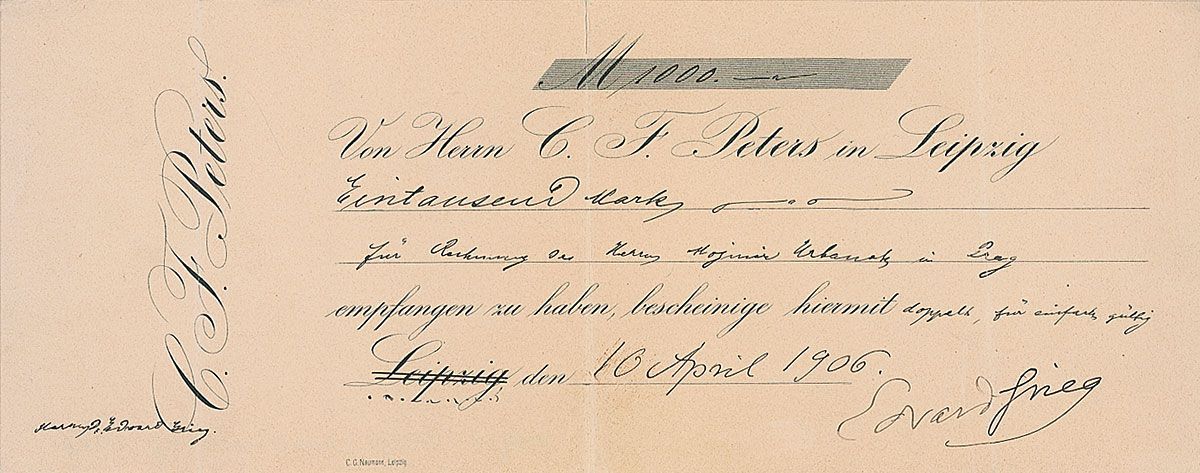 C. F. Peters.
M 1000.—
Von Herrn C. F. Peters in Leipzig
Eintausend Mark
für Rechnung des Herrn Mojmir Urbanek in Prag
empfangen zu haben, bescheinige hiermit doppelt, für einfach gültig
Leipzig den 10 April 1906.
Edvard Grieg
Herrn Dr. Edward Grieg.
C. G. Naumann, Leipzig